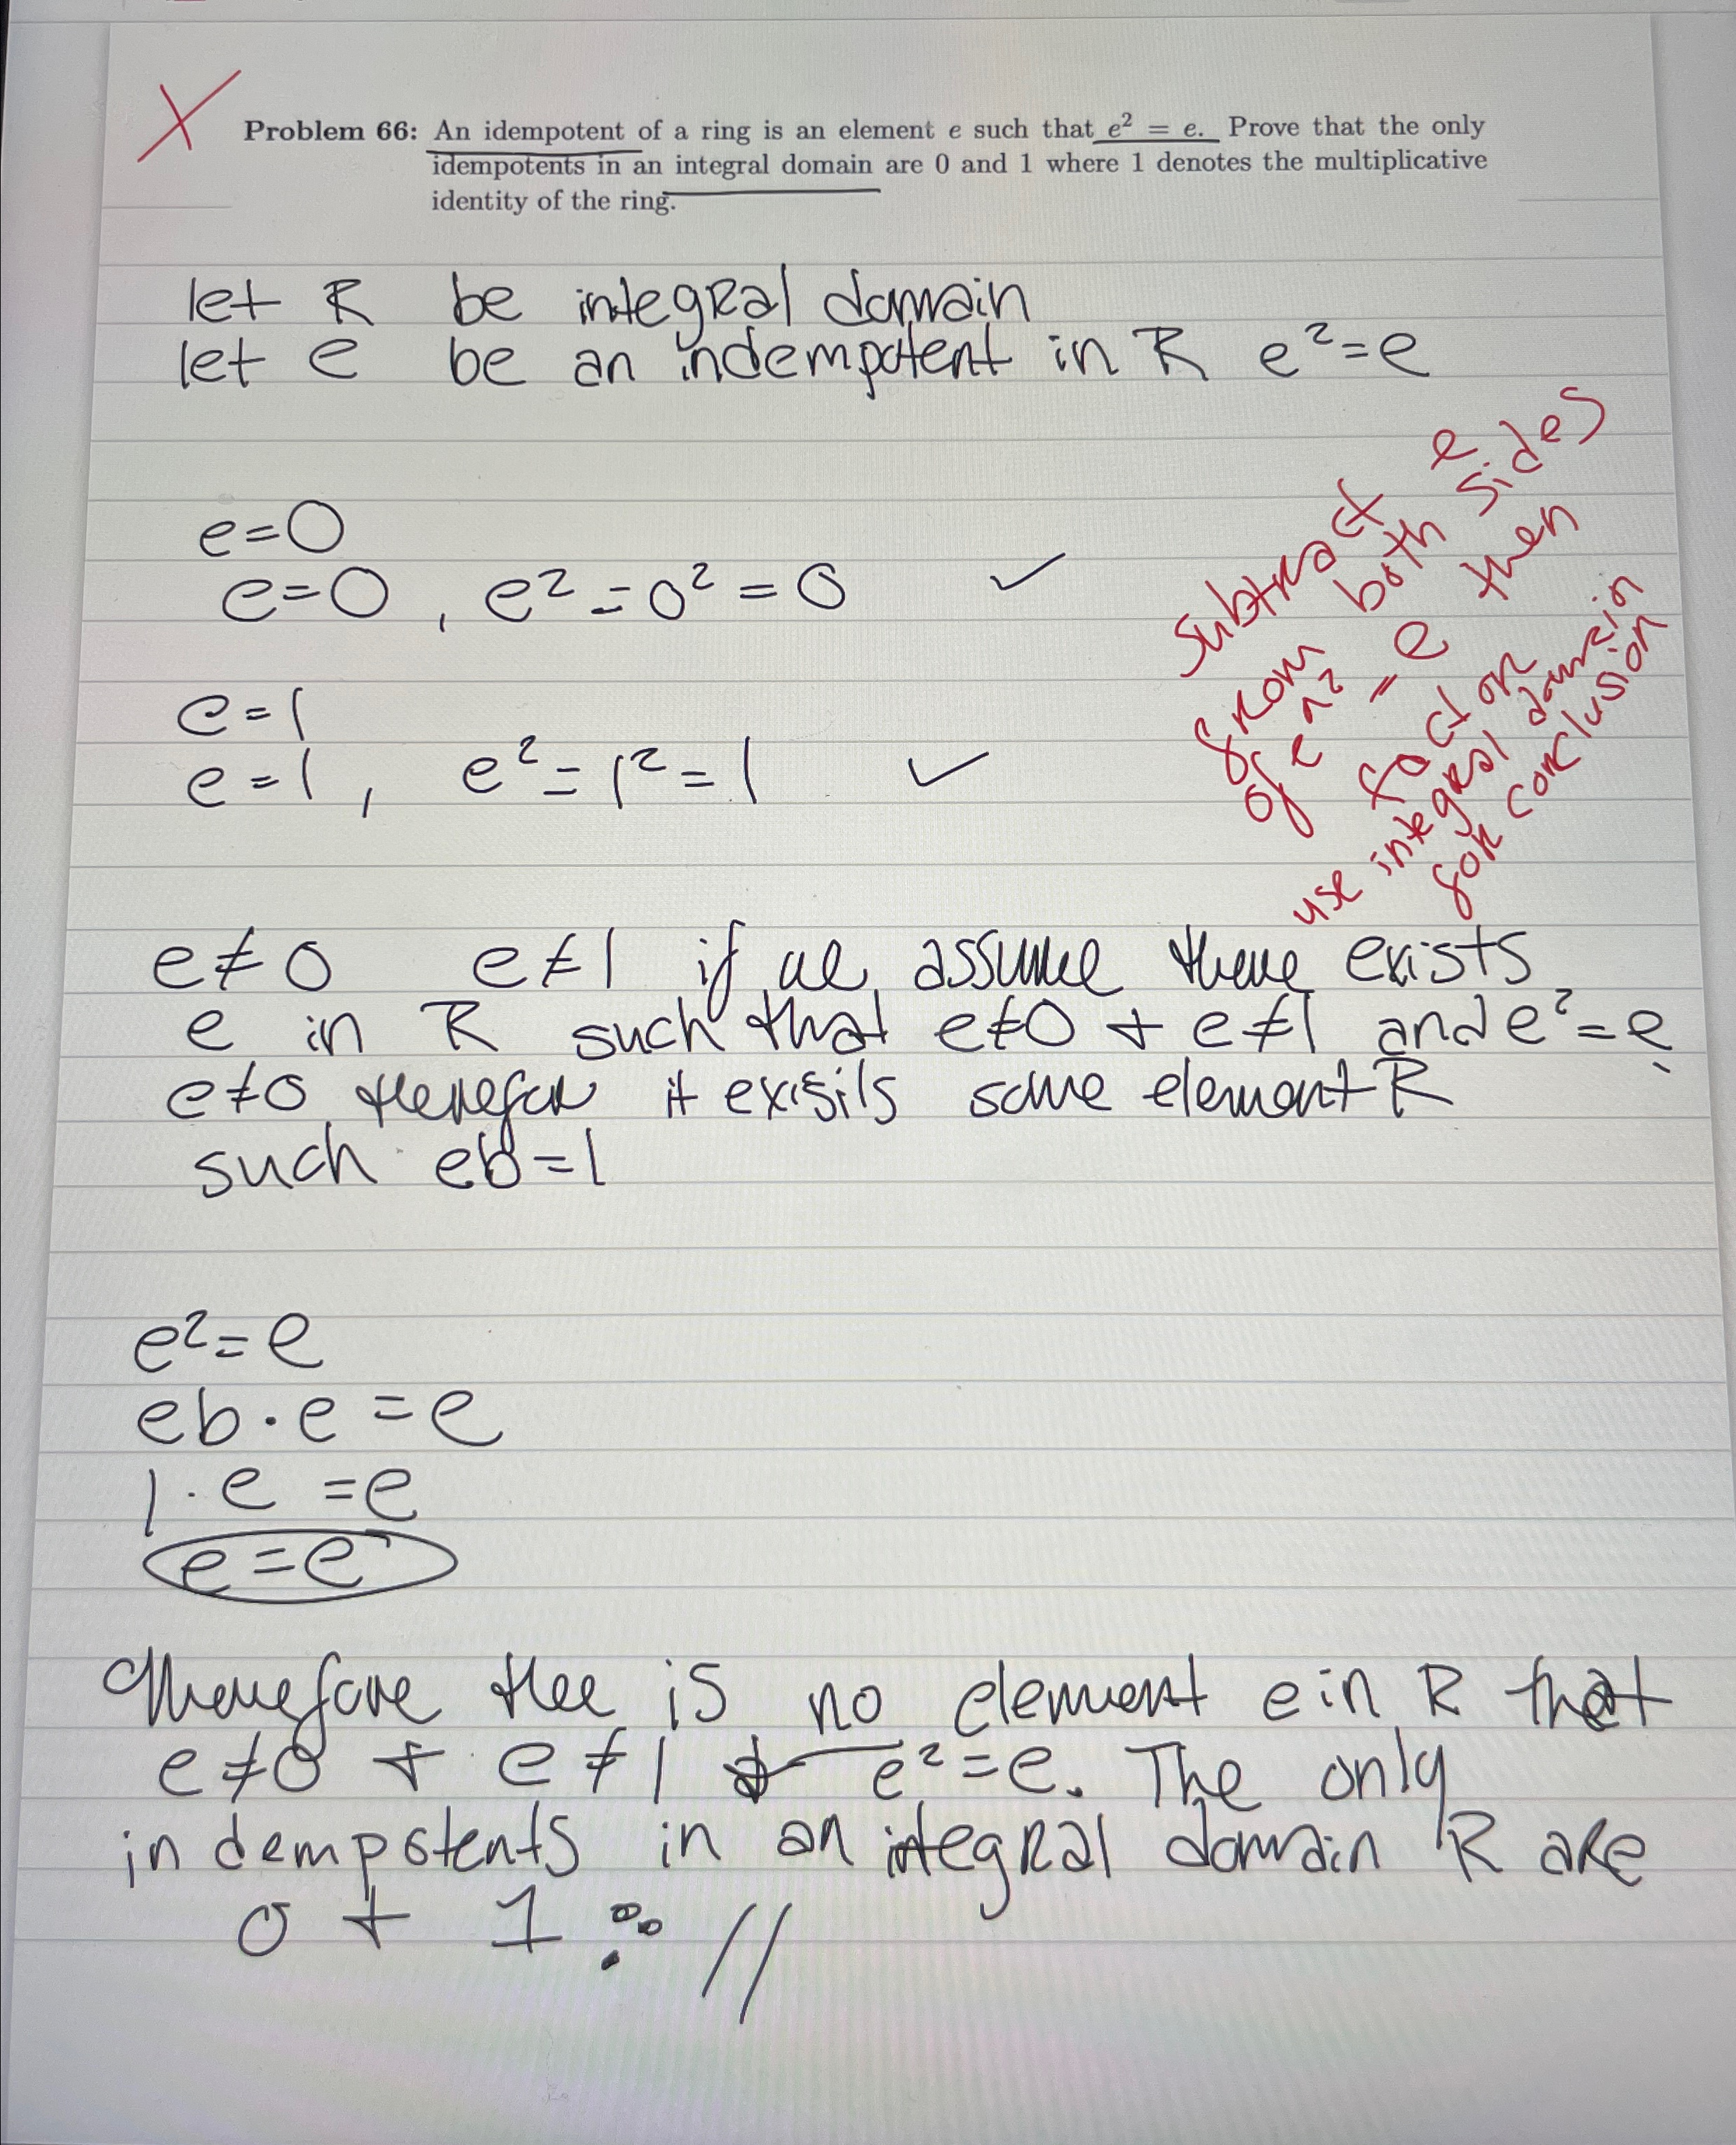 Problem 66: An idempotent of a ring is an element e such that e² = e. Prove that the only
idempotents in an integral domain are 0 and 1 where 1 denotes the multiplicative
identity of the ring.
let R be integral domain
let e be an indempotent in R e²=e
e=0
e=0 , e²=0²=0 ✓
e=1
e=1, e²=1²=1 ✓
subtract e
from both sides
of e^2 = e then
factor
use integral domain
for conclusion
e≠0 e≠1 if we assume there exists
e in R such that e≠0 + e≠1 and e²=e
e≠0 therefor it exisits some element R
such eb=1
e²=e
eb·e=e
1·e=e
e=e
Therefore thee is no element e in R that
e≠0 + e≠1 + e²=e. The only
indempotents in an integral domain R are
0 + 1 //